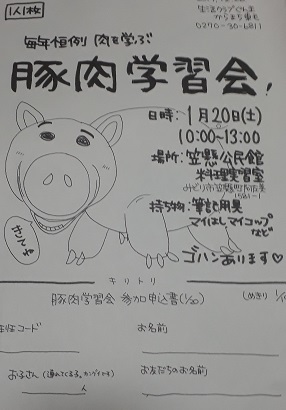 1人1枚
生活クラブぐんま
からまち東毛
0270-30-6811
毎年恒例 肉を学ぶ
豚肉学習会!
日時:1月20日(土)
10:00~13:00
場所:笠懸公民館
料理実習室
みどり市笠懸町阿左美
1581-1
持ち物:筆記用具
マイはしマイコップ
など
きてね
ゴハンあります♡
キリトリ
豚肉学習会 参加申込書(1/20)
(しめきり
コード
お名前
お子さん
人
お友だちのお名前